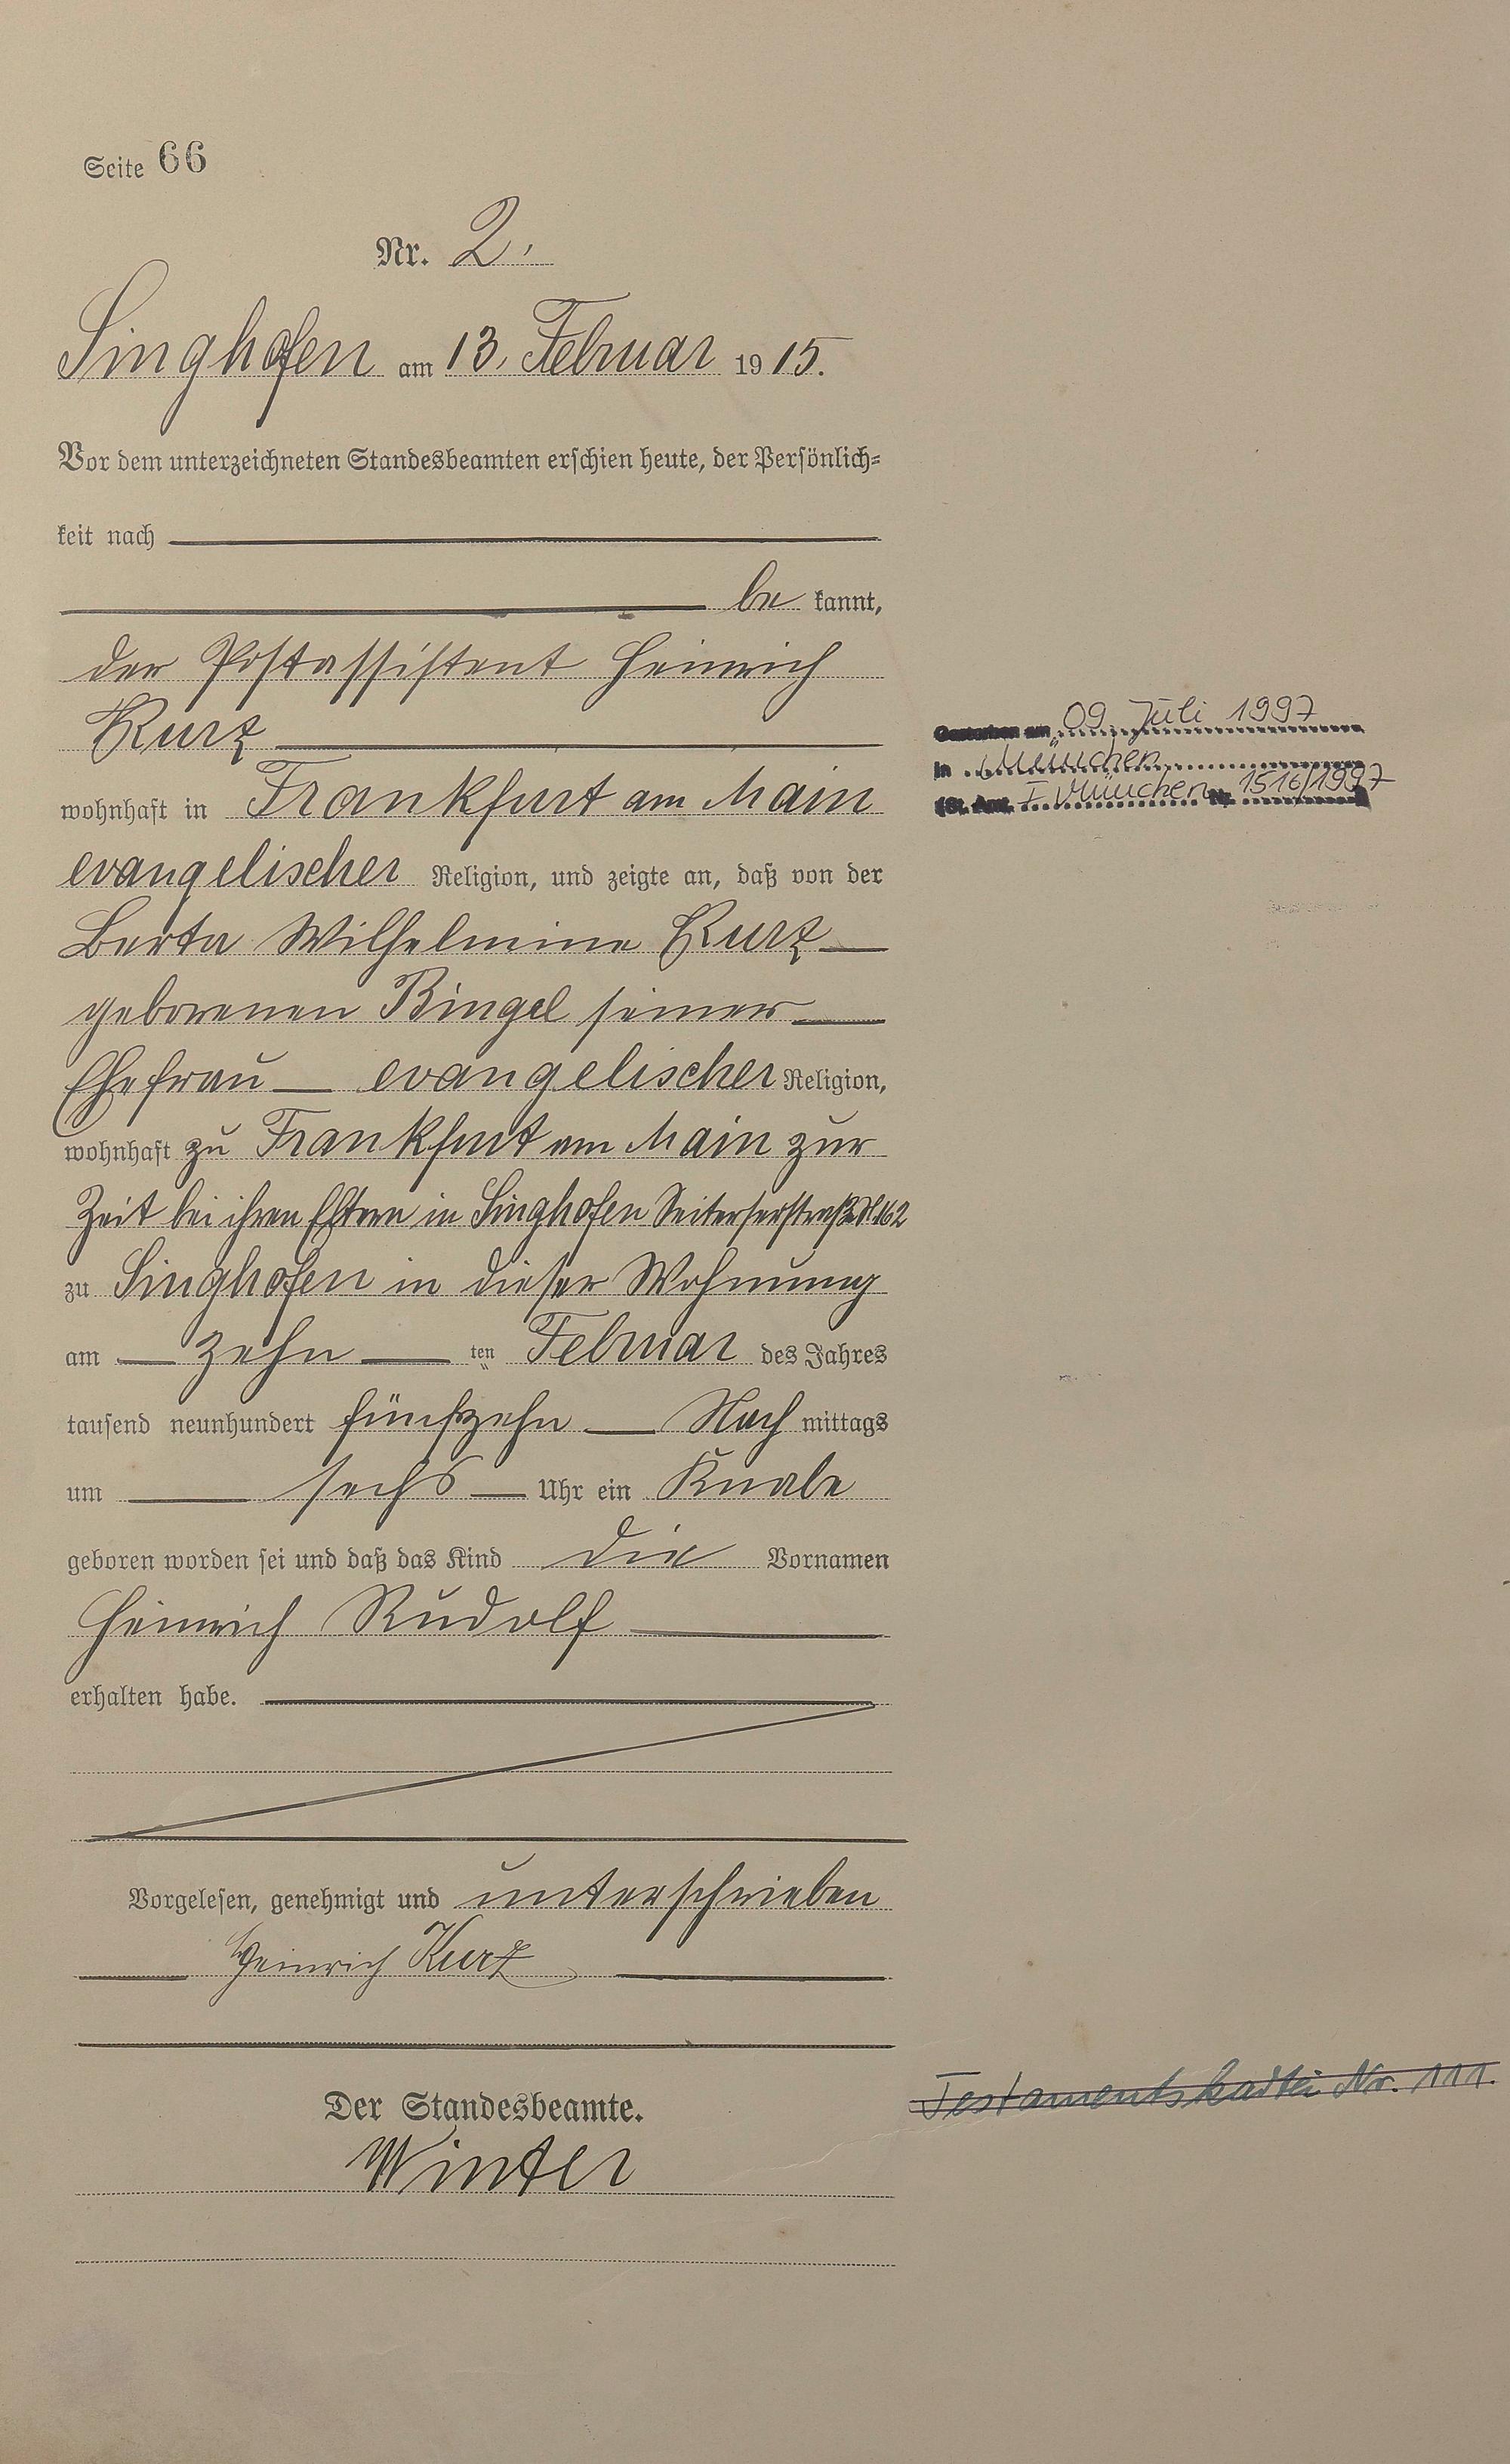 Seite 66
Nr. 2.
Singhofen am 13. Februar 1915.
Vor dem unterzeichneten Standesbeamten erschien heute, der Persönlich=
keit nach
be kannt,
der Postassistent Heinrich
Kurz
wohnhaft in Frankfurt am Main
evangelischer Religion, und zeigte an, daß von der
Berta Wilhelmine Kurz
geborenen Bingel seiner
Ehefrau evangelischer Religion,
wohnhaft zu Frankfurt am Main zur
Zeit bei ihren Eltern in Singhofen N. 162
zu Singhofen in dieser Wohnung
am zehn ten Februar des Jahres
tausend neunhundert fünfzehn Nach mittags
um sechs Uhr ein Knabe
geboren worden sei und daß das Kind die Vornamen
Heinrich Rudolf
erhalten habe.
Vorgelesen, genehmigt und unterschrieben
Heinrich Kurz
Der Standesbeamte.
Winter
Gestorben am 09. Juli 1997
in München
(St. Amt. I München Nr. 1516/1997
Testamentskartei Nr. 111.